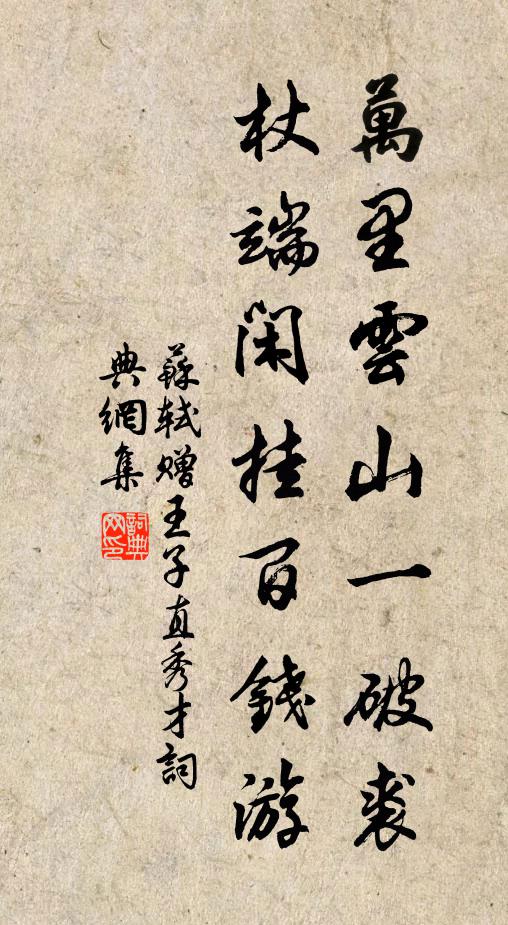 萬里雲山一破裘
杖端閑挂百錢游
蘇軾贈王子直秀才詞
典網集
詞典网印